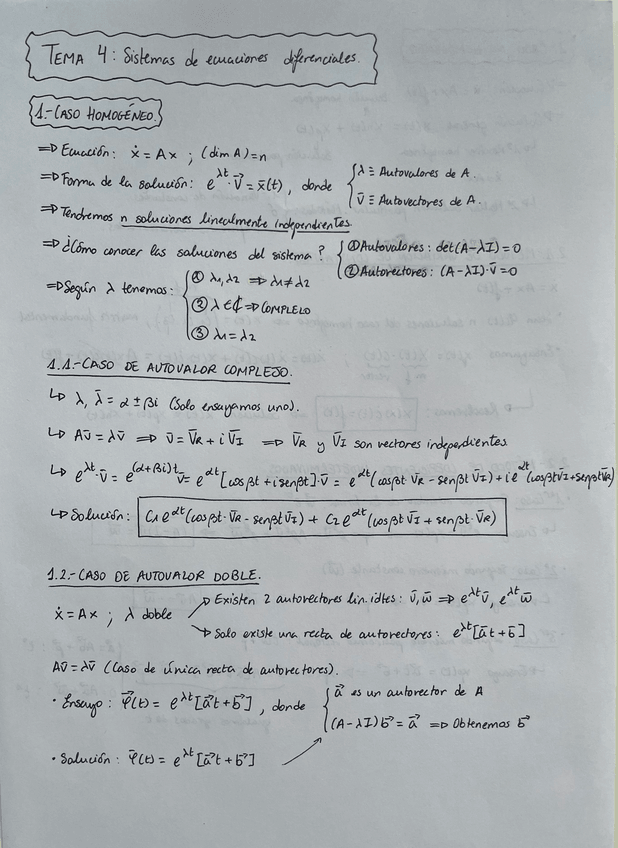 TEMA 4: Sistemas de ecuaciones diferenciales.
1.- CASO HOMOGÉNEO.
⇒ Ecuación: ẋ = Ax ; (dim A) = n
⇒ Forma de la solución: e^λt · v⃗ = x̄(t), donde { λ ≡ Autovalores de A.
v̄ ≡ Autovectores de A.
⇒ Tendremos n soluciones linealmente independientes.
⇒ ¿Cómo conocer las soluciones del sistema? { ① Autovalores: det(A-λI) = 0
② Autovectores: (A-λI)·v̄ = 0
⇒ Según λ tenemos: { ① λ1, λ2 ⇒ λ1 ≠ λ2
② λ ∈ ℂ ⇒ COMPLEJO
③ λ1 = λ2
1.1.- CASO DE AUTOVALOR COMPLEJO.
↳ λ, λ̄ = α ± βi (Solo ensayamos uno).
↳ Av̄ = λv̄ ⇒ v̄ = v̄R + i v̄I ⇒ v̄R y v̄I son vectores indepdientes.
↳ e^λt · v̄ = e^(α+βi)t v̄ = e^αt [cosβt + i senβt]·v̄ = e^αt (cosβt v̄R - senβt v̄I) + i e^αt (cosβt v̄I + senβt v̄R)
↳ Solución: C1 e^αt (cosβt·v̄R - senβt v̄I) + C2 e^αt (cosβt v̄I + senβt·v̄R)
1.2.- CASO DE AUTOVALOR DOBLE.
ẋ = Ax ; λ doble → Existen 2 autovectores lin. idtes: v̄, w̄ ⇒ e^λt v̄, e^λt w̄
→ Solo existe una recta de autovectores: e^λt [āt + b̄]
Av̄ = λv̄ (Caso de única recta de autovectores).
· Ensayo: φ⃗(t) = e^λt [a⃗t + b⃗], donde { a⃗ es un autovector de A
(A-λI) b⃗ = a⃗ ⇒ Obtenemos b⃗
· Solución: φ̄(t) = e^λt [a⃗t + b⃗]